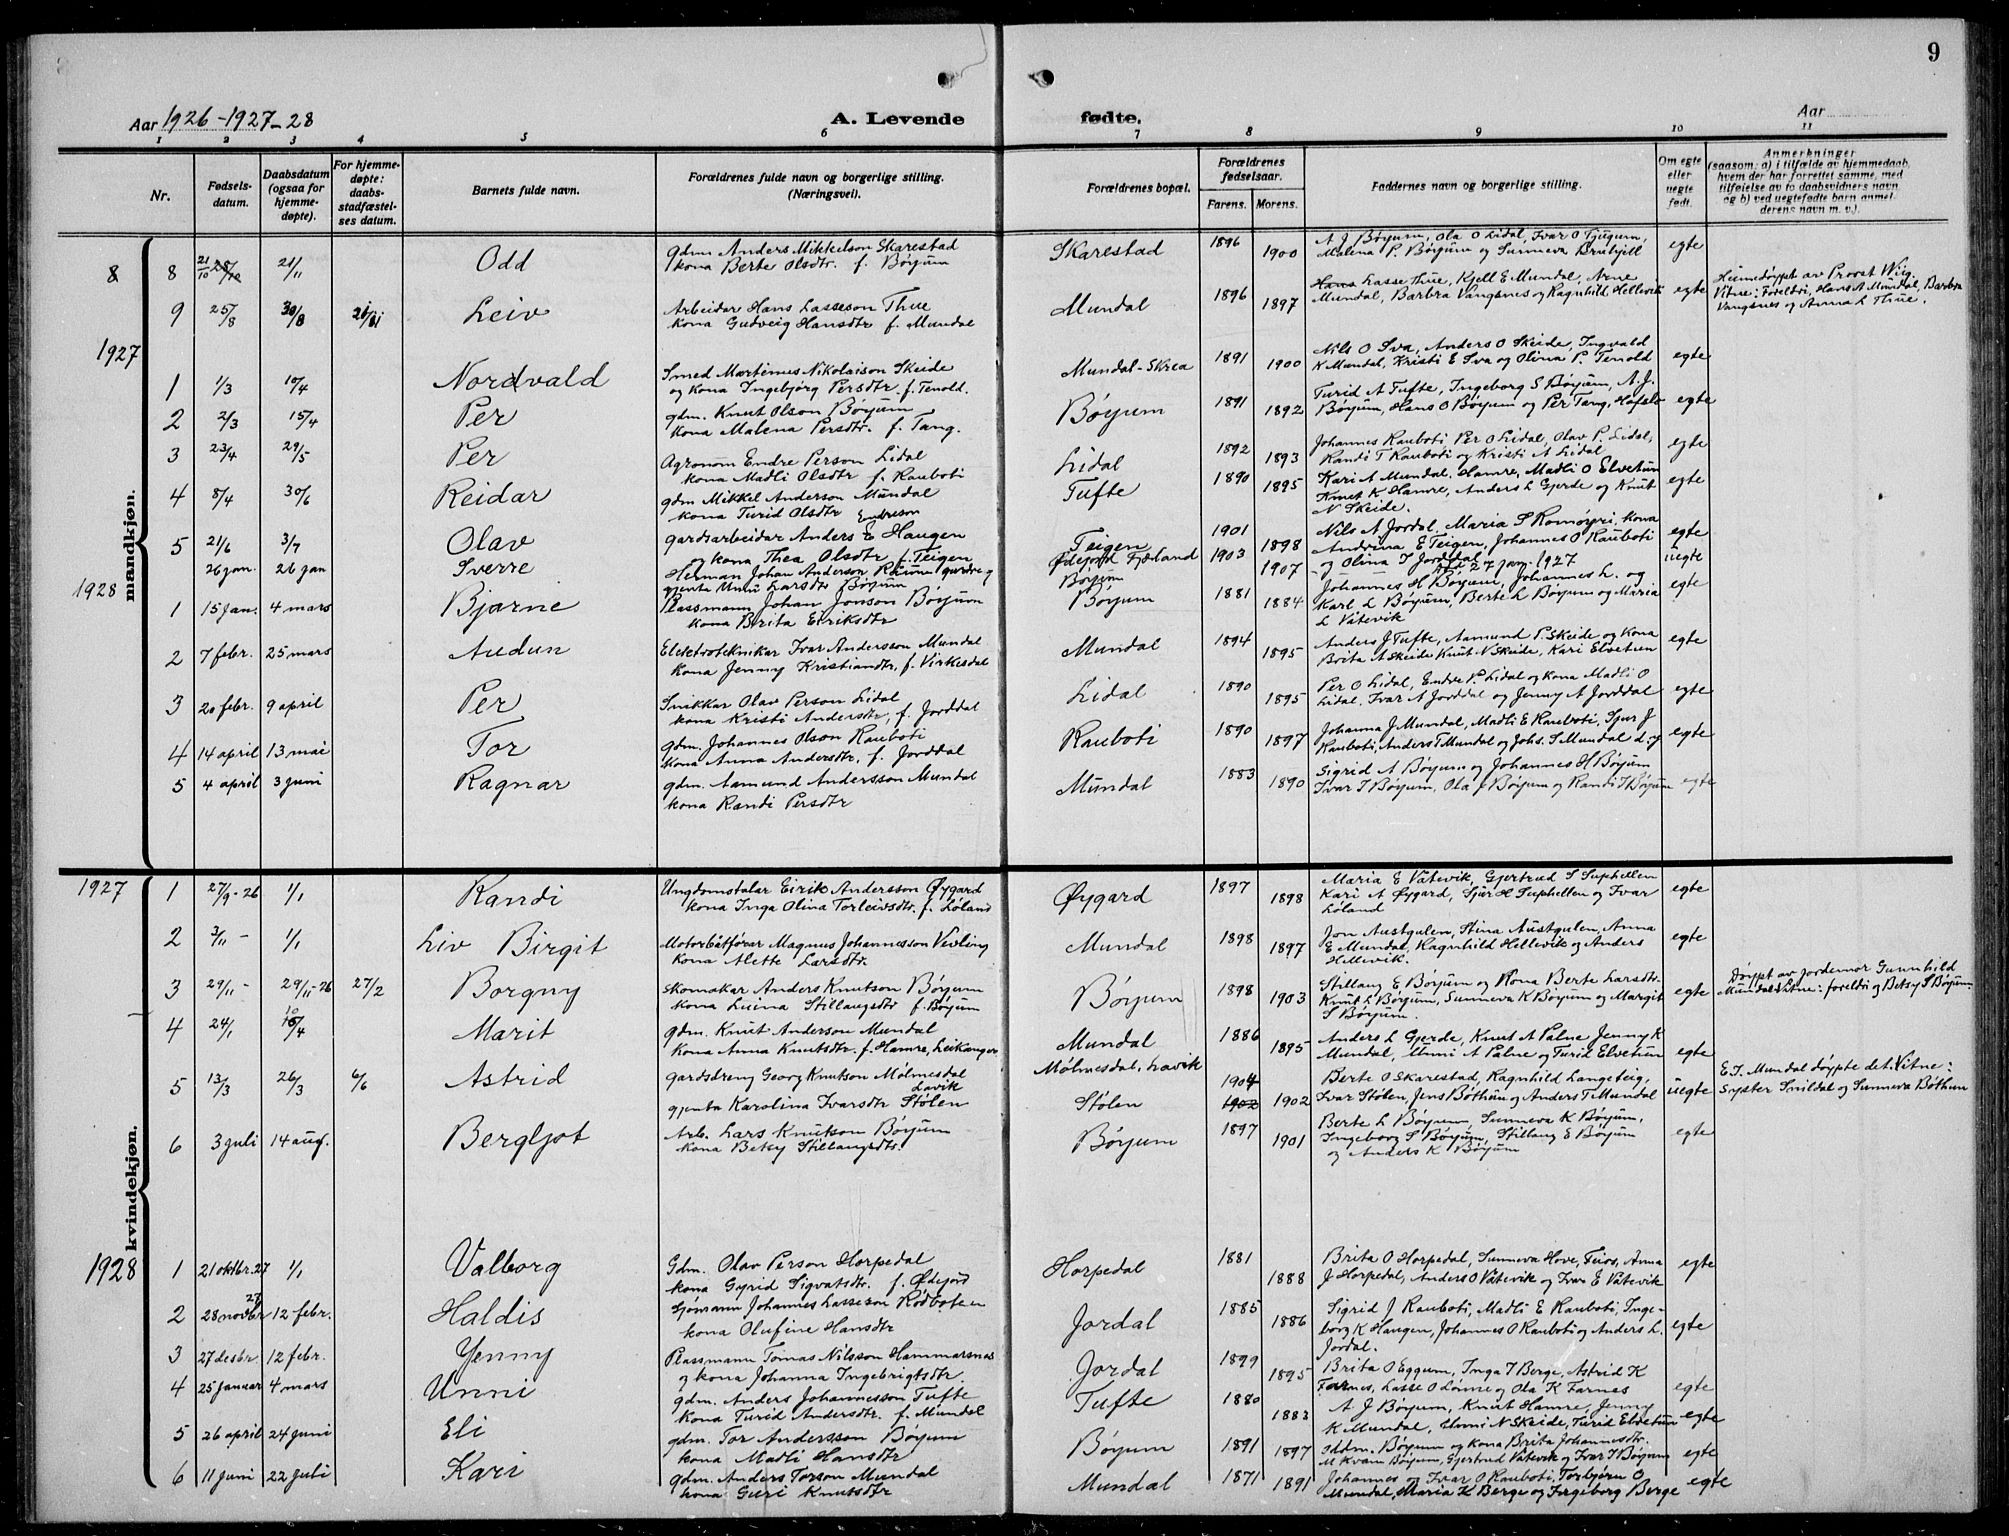 9
Aar 1926-1927-28
A. Levende fødte.
Aar
1 2 3 4 5 6 7 8 9 10 11
Nr.
Fødsels-datum.
Daabsdatum (ogsaa for hjemme-døpte).
For hjemme-døpte: daabs-stadfæstel-ses datum.
Barnets fulde navn.
Forældrenes fulde navn og borgerlige stilling. (Næringsvei).
Forældrenes bopæl.
Forældrenes fødselsaar.
Farens. Morens.
Faddernes navn og borgerlige stilling.
Om egte eller uegte født.
Anmerkninger
(saasom: a) i tilfælde av hjemmedaab, hvem der har forrettet samme, med tilføielse av to daabsvidners navn og b) ved uegtefødte barn anmelderens navn m. v.).
mandkjøn.
8 8 21/10 21/11 Odd gdm. Anders Mikkelson Skarestad
kona Berte Olsdtr. f. Bøyum
Skarestad 1896 1900 A J Bøyum, Ola O Lidal, Ivar O Tjugum,
Malena P. Bøyum og Sunneva Brubjell egte
9 25/8 30/8 26/81 Leiv Arbeidar Hans Lasseson Thue
kona Gudveig Hansdtr f. Mundal
Mundal 1896 1897 Hans Lasse Thue, Kjell E Mundal, Arne
Mundal, Barbra Vangsnes og Ragnhild Hellevik egte
Heimedøypt av Provst Wiig.
Vitne: Foreldri, Hans A Mundal, Barbra
Vangsnes og Anna L Thue.
1927
1 1/3 10/4 Nordvald Smed Martinus Nikolaison Skeide
og kona Ingebjørg Persdtr. f. Tenold.
Mundal-Skrea 1891 1900 Nils O Sva, Anders O Skeide, Ingvald
K Mundal, Kristi E Sva og Olina P. Tenold egte
2 2/3 15/4 Per gdm. Knut Olson Bøyum
kona Malena Persdtr. f. Tang.
Bøyum 1891 1892 Turid A Tufte, Ingeborg S Bøyum, A. J.
Bøyum, Hans O Bøyum og Per Tang, Hafslo egte
3 23/4 29/5 Per Agronom Endre Person Lidal
kona Madli Olsdtr f. Rauboti
Lidal 1892 1893 Johannes Rauboti, Per O Lidal, Olav P. Lidal,
Randi T Rauboti og Kristi A Lidal egte
4 8/4 30/6 Reidar gdm Mikkel Anderson Mundal
kona Turid Olsdtr
Tufte 1890 1895 Kari A Mundal, Hamre, Madli O Elvetun
Knut K Hamre, Anders L Gjerde og Knut
N Skeide. egte
5 21/6 3/7 Olav gardsarbeidar Anders E Haugen
Endreson
og kona Thea Olsdtr f. Teigen
Teigen 1901 1898 Nils A Jordal, Maria S Romøyri, kona
Andrina E Teigen, Johannes O Rauboti
og Olina J Jorddal egte
26 jan. 26 jan Sverre Herman Johan Anderson gardbr. og
gjenta Unni Larsdtr Bøyum
Ødejord Fjærland
Bøyum 1903 1907 27 jan. 1927 uegte
1928
1 15 jan. 4 mars Bjarne Plassmann Johan Jonson Bøyum
kona Brita Eiriksdtr
Bøyum 1881 1884 Johannes H Bøyum, Johannes L. og
Karl L Bøyum, Berte L Bøyum og Maria
L Vatevik egte
2 7 febr. 25 mars Audun Elektroteknikar Ivar Andersson Mundal
kona Jenny Kristiandtr, f. Virkesdal
Mundal 1894 1895 Anders J Tufte, Aamund P. Skeide og kona
Brita A Skeide Knut N Skeide, Kari Elvetun egte
3 20 febr. 9 april Per Snikkar Olav Person Lidal
kona Kristi Andersdtr, f. Jorddal
Lidal 1890 1895 Per O Lidal, Endre P. Lidal og kona Madli O
Lidal, Ivar A Jorddal og Jenny A Jorddal egte
4 14 april 13 mai Tor gdm. Johannes Olson Rauboti
kona Anna Andersdtr, f. Jorddal
Rauboti 1890 1897 Johanna J Mundal, Madli E Rauboti, Sjur J
Rauboti, Anders T Mundal og Johs. S Mundal d. y egte
5 4 april 3 juni Ragnar gdm. Aamund Andersson Mundal
kona Randi Persdtr
Mundal 1883 1890 Sigrid A Bøyum og Johannes H Bøyum
Ivar T Bøyum, Ola J Bøyum og Randi I Bøyum egte
kvindekjøn.
1927
1 27/9-26 1/1 Randi Ungdomstalar Eirik Andersson Øygard
kona Inga Olina Torleivsdtr. f. Løland
Øygard 1897 1898 Maria E Vatevik, Gjertrud S Suphellen
Kari A Øygard, Sjur H Suphellen og Ivar
Løland egte
2 3/11 - 1/1 Liv Birgit Motorbåtførar Magnus Johannesson Vevling
kona Alette Larsdtr.
Mundal 1898 1897 Jon Austgulen, Stina Austgulen, Anna
E Mundal, Ragnhild Hellevik og Anders
Hellevik. egte
3 29/11 - 29/11-26 27/2 Borgny Skomakar Anders Knutson Bøyum
kona Luina Stillaugsdtr f. Bøyum
Bøyum 1898 1903 Stillaug E Bøyum og kona Berte Larsdtr.
Knut L Bøyum, Sunneva K Bøyum og Margit
S Bøyum. egte
Døypt av jordemor Gunnhild
Mundal. Vitne: foreldri og Betsy S Bøyum
4 24/1 10/4 Marit gdm. Knut Anderson Mundal
kona Anna Knutsdtr. f. Hamre, Leikanger
Mundal 1886 1895 Anders L Gjerde, Knut A Palne Jenny K
Mundal, Unni A Palne og Turid Elvetun egte
5 13/3 26/3 6/6 Astrid gardsdreng Georg Knutson Mølmesdal
Lavik
gjenta Karolina Ivarsdtr Stølen
Mølmesdal, Lavik
Stølen 1904 1902 1902 Berte O Skarestad, Ragnhild Langeteig,
Ivar Stølen, Jens Bøthun og Anders T Mundal uegte
E. J. Mundal døypte det. Vitne:
Syster Snildal og Sunneva Bøthun
6 3 juli 14 aug. Bergljot Arb. Lars Knutson Bøyum
kona Betsy Stillaugsdtr.
Bøyum 1897 1901 Berte L Bøyum, Sunneva K Bøyum,
Ingeborg S Bøyum, Stillaug E Bøyum
og Anders K Bøyum egte
1928
1 21 oktbr. 27 1/1 Valborg Gdm. Olav Person Horpedal
kona Gyrid Sigvatsdtr. f. Ødejord
Horpedal 1881 1888 Brita O Horpedal, Sunneva Hove, Feios, Anna
J Horpedal, Anders O Vatevik og Ivar E Vatevik egte
2 28 novbr 27 12 febr. Haldis Sjømann Johannes Lasseson Rødboteen
kona Olufine Hansdtr
Jordal 1885 1886 Sigrid J Rauboti, Madli E Rauboti, Inge-
borg K Haugen, Johannes O Rauboti og Anders L.
Jordal. egte
3 27 desbr. 12 febr. Jenny Plassmann Tomas Nilsson Hammarsnes
og kona Johanna Ingebrigtsdtr.
Jordal 1899 1895 Brita O Eggum, Inga T Berge, Astrid K
Farnes, Lasse O Lonne og Ola K Farnes egte
4 25 januar 4 mars Unni gdm. Anders Johannesson Tufte
kona Turid Andersdtr. f. Mundal
Tufte 1880 1883 A J Bøyum, Knut Hamre, Jenny
K Mundal, Unni N Skeide, Turid Elvetun egte
5 26 april 24 juni Eli gdm. Tor Andersson Bøyum
kona Madli Hansdtr
Bøyum 1891 1897 Oddm. Bøyum og kona Brita Johannesdtr.
M Kvam Bøyum, Gjertrud Vatevik og Ivar T Bøyum egte
6 11 juni 22 juli Kari gdm. Anders Torson Mundal
kona Guri Knutsdtr
Mundal 1871 1891 Johannes og Ivar O Rauboti, Torbjørn O
Mundal, Maria K Berge og Ingeborg Berge egte